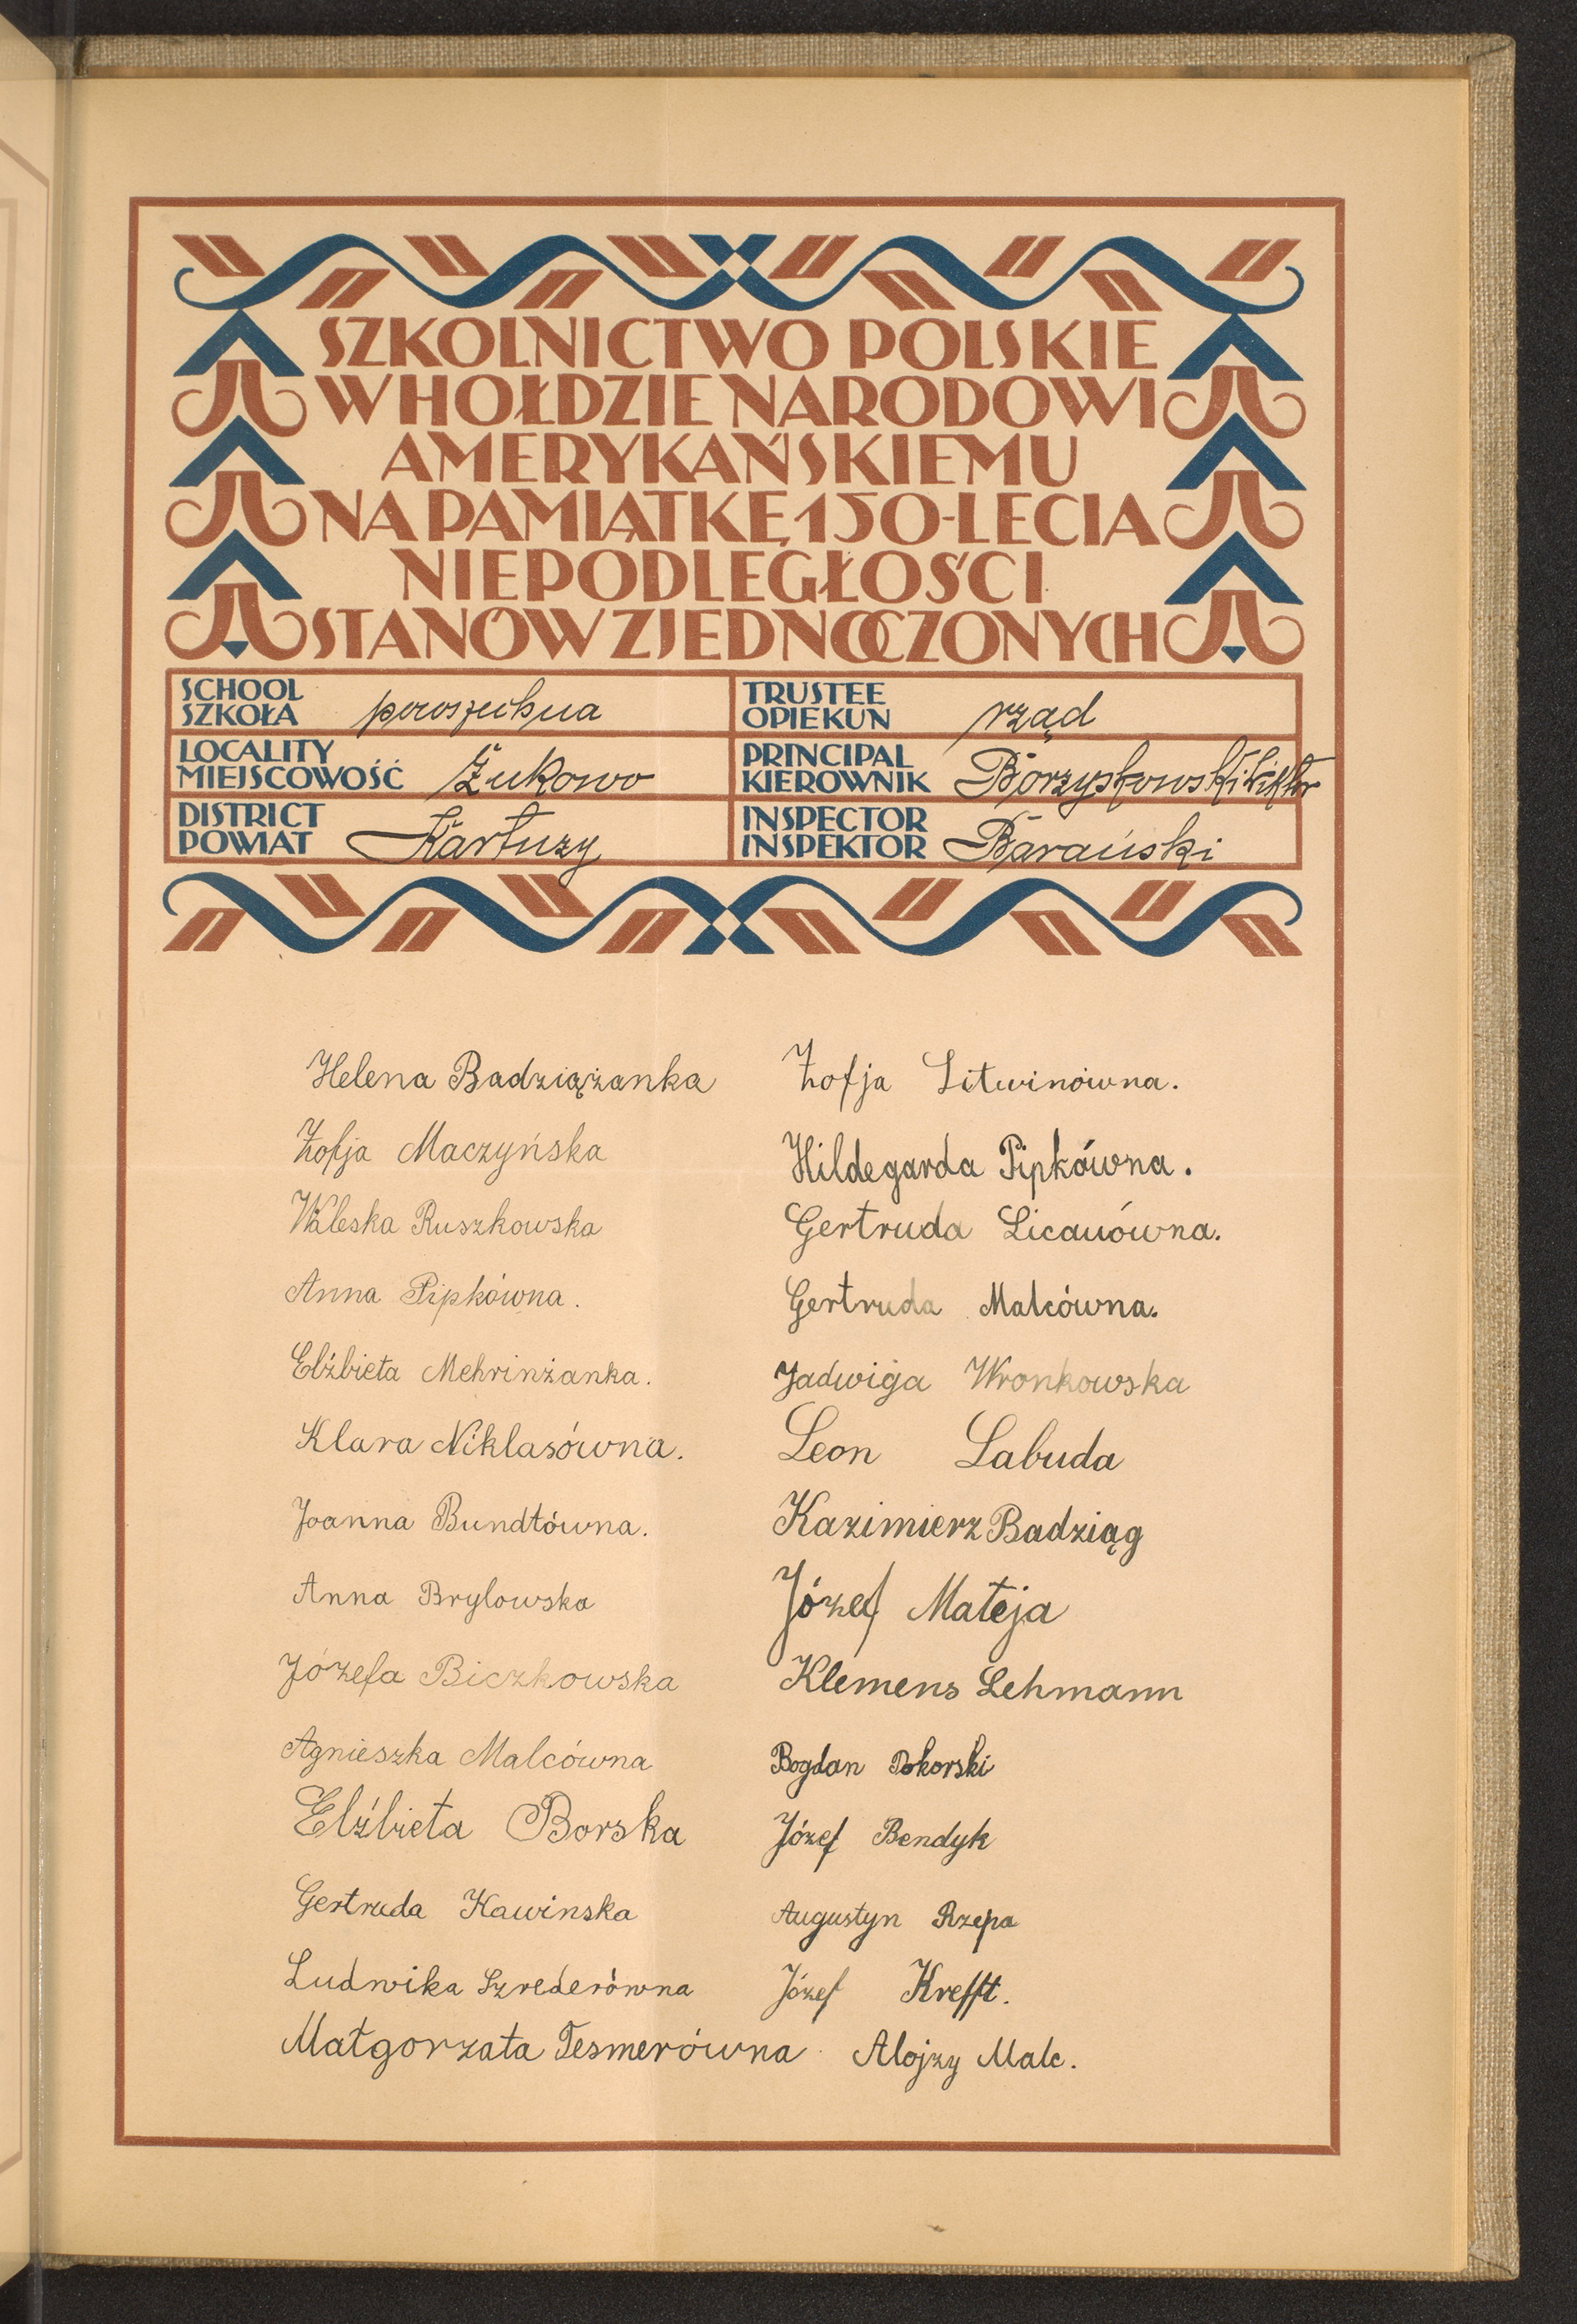 SZKOLNICTWO POLSKIE
W HOŁDZIE NARODOWI
AMERYKAŃSKIEMU
NA PAMIĄTKĘ 150-LECIA
NIEPODLEGŁOŚCI
STANÓW ZJEDNOCZONYCH
SCHOOL
SZKOŁA powszechna
TRUSTEE
OPIEKUN rząd
LOCALITY
MIEJSCOWOŚĆ Żukowo
PRINCIPAL
KIEROWNIK Borzyszkowski Wiktor
DISTRICT
POWIAT Kartuzy
INSPECTOR
INSPEKTOR Barański
Helena Badziążanka
Zofja Maczyńska
Waleska Ruszkowska
Anna Pipkówna.
Elżbieta Mehrinżanka.
Klara Niklasówna.
Joanna Bundtówna.
Anna Brylowska
Józefa Biczkowska
Agnieszka Malcówna
Elżbieta Borska
Gertruda Kawinska
Ludwika Szrederówna
Małgorzata Tesmerówna
Zofja Litwinówna.
Hildegarda Pipkówna.
Gertruda Licauówna.
Gertruda Malcówna.
Jadwiga Wronkowska
Leon Labuda
Kazimierz Badziąg
Józef Mateja
Klemens Lehmann
Bogdan Pokorski
Józef Bendyk
Augustyn Rzepa
Józef Krefft.
Alojzy Malc.